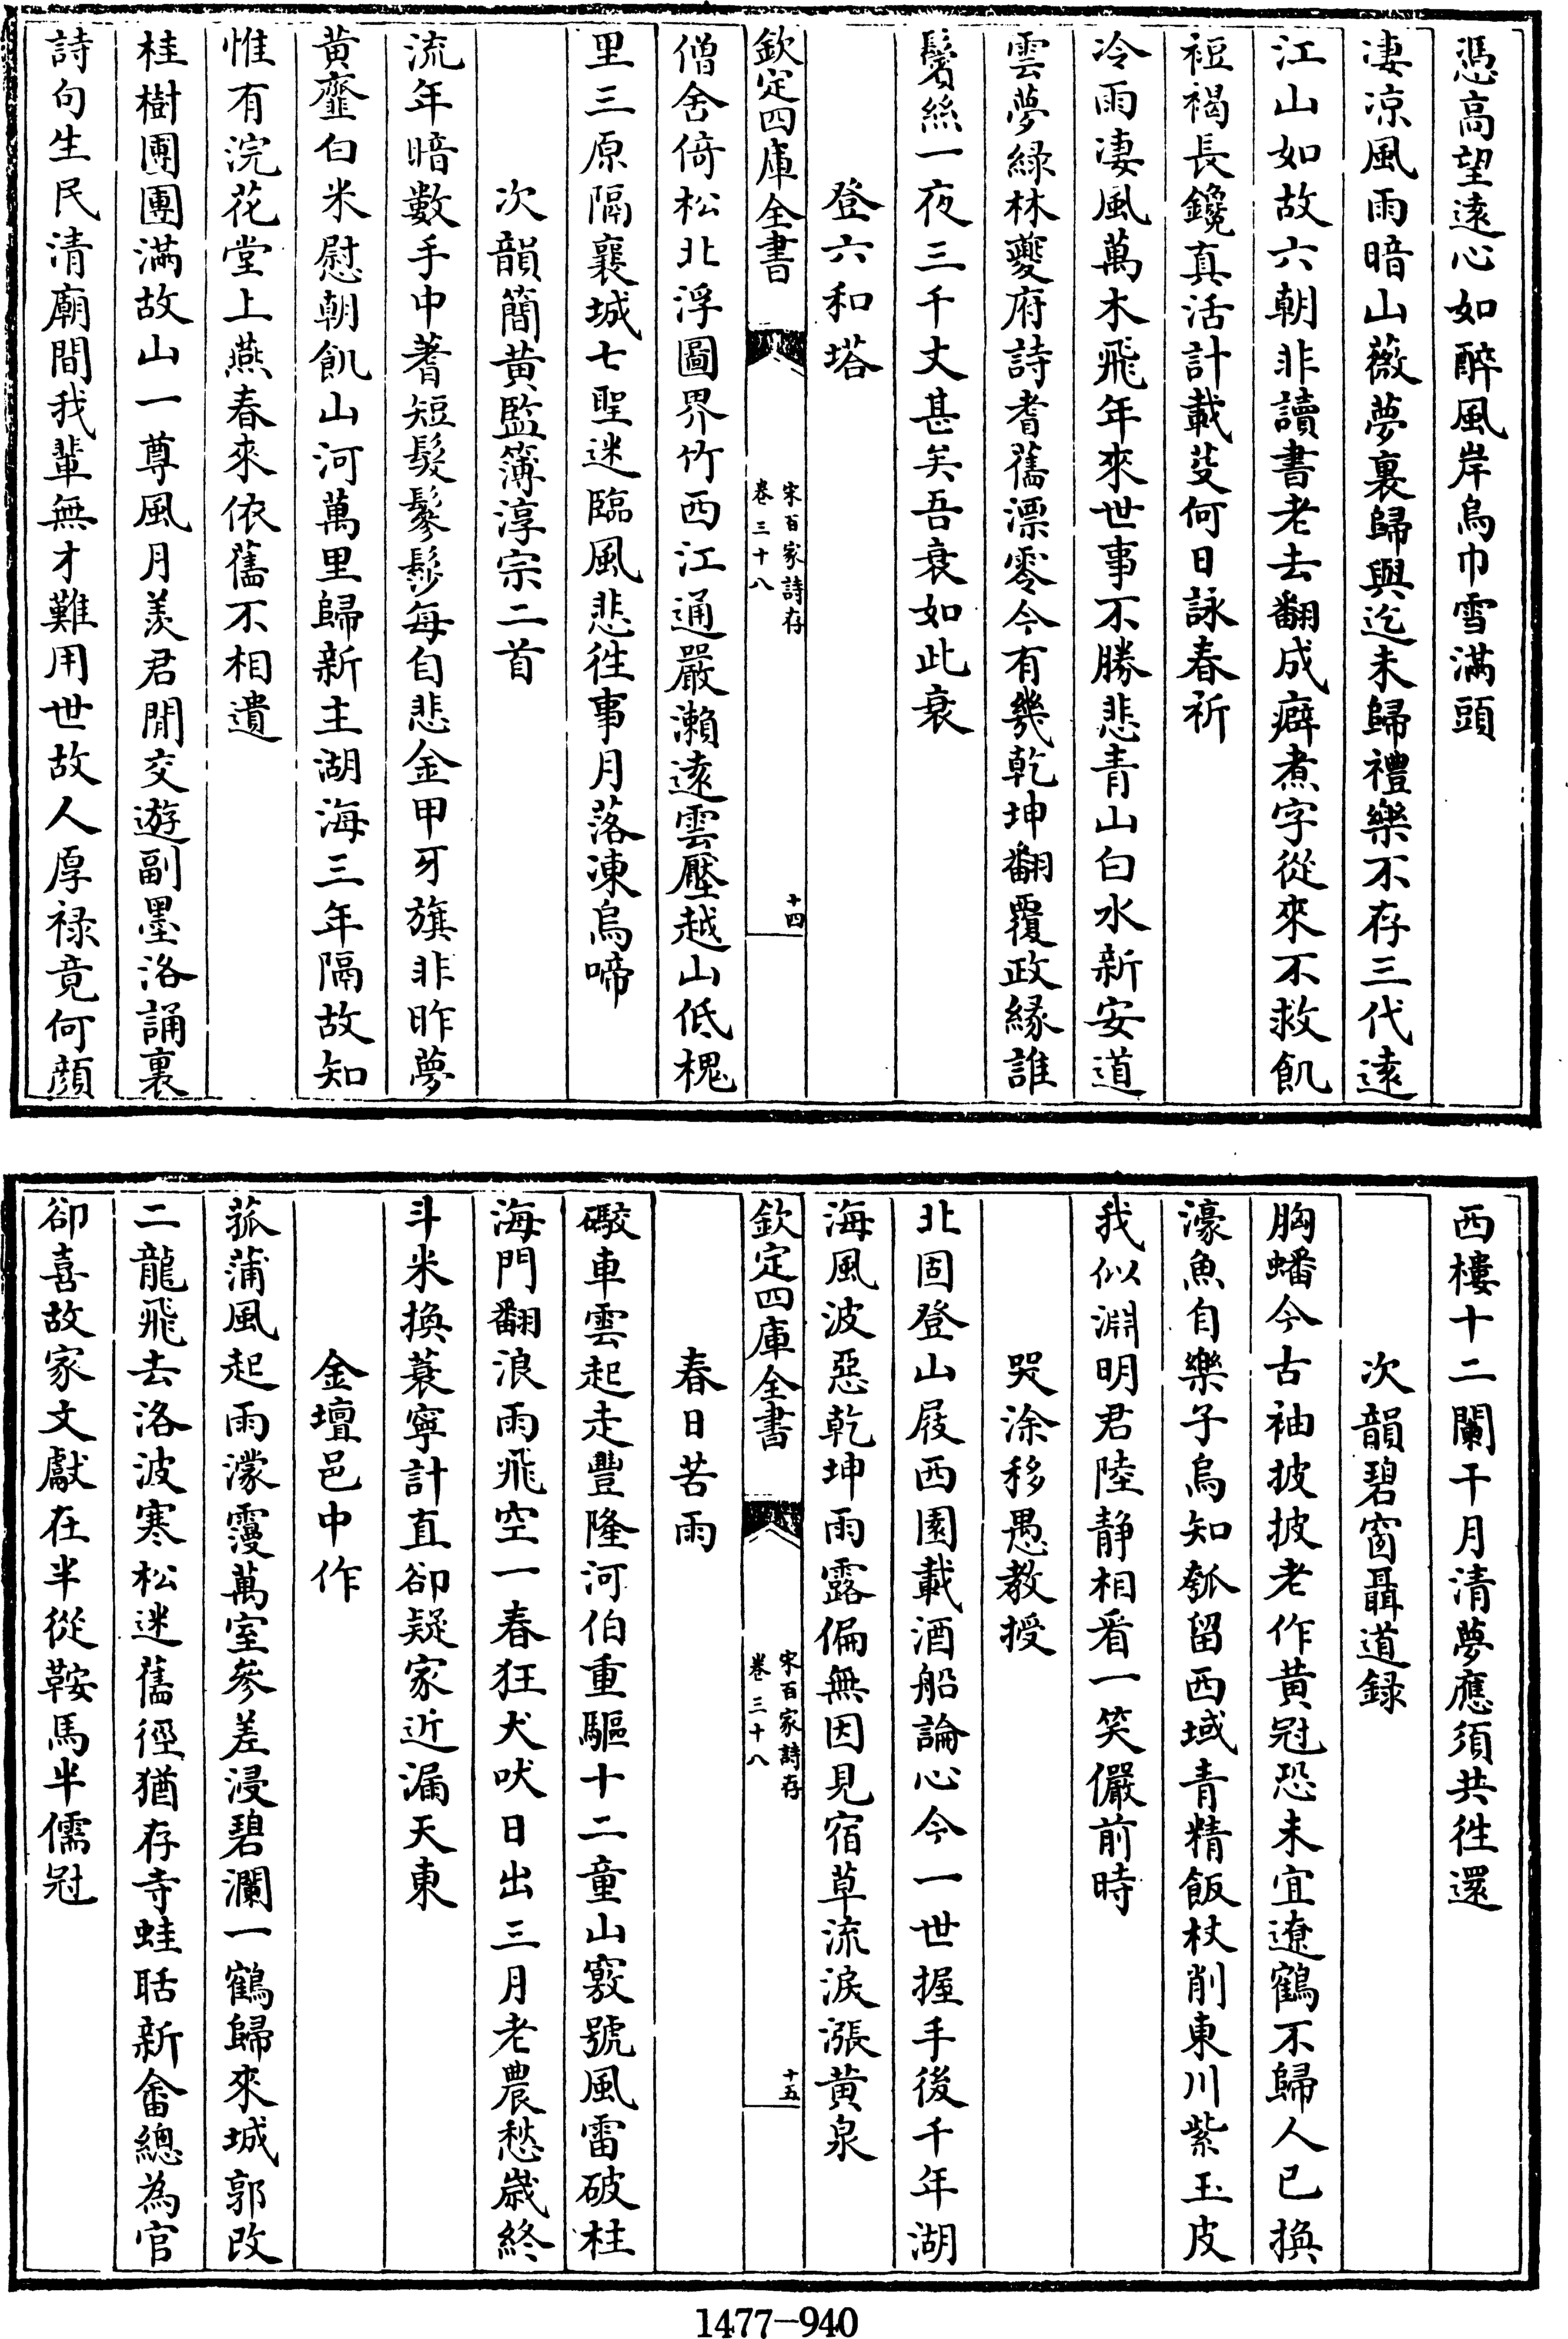 憑高望逺心如醉風岸烏巾雪滿頭
凄凉風雨暗山薇夢裏歸與迄未歸禮樂不存三代逺
江山如故六朝非讀書老去翻成癖煮字從來不救飢
裋褐長鑱真活計載芟何日詠春祈
冷雨凄風萬木飛年來世事不勝悲青山白水新安道
雲夢緑林夔府詩耆舊漂零今有幾乾坤翻覆政縁誰
鬢絲一夜三千丈甚矣吾衰如此衰
登六和塔
欽定四庫全書
宋百家詩存
卷三十八
十四
僧舍倚松北浮圖界竹西江通嚴瀨逺雲壓越山低槐
里三原隔襄城七聖迷臨風悲徃事月落凍烏啼
次韻簡黄監簿淳宗二首
流年暗數手中蓍短髮鬖髿每自悲金甲牙旗非昨夢
黄虀白米慰朝飢山河萬里歸新主湖海三年隔故知
惟有浣花堂上燕春來依舊不相遺
桂樹團團滿故山一尊風月羨君閒交遊副墨洛誦裏
詩句生民清廟間我輩無才難用世故人厚禄竟何顔
西樓十二闌干月清夢應須共徃還
次韻碧窗聶道録
胸蟠今古袖披披老作黄冠恐未宜遼鶴不歸人已換
濠魚自樂子烏知瓠留西域青精飯杖削東川紫玉皮
我似淵明君陸静相看一笑儼前時
哭涂移愚教授
北固登山屐西園載酒船論心今一世握手後千年湖
海風波惡乾坤雨露偏無因見宿草流淚漲黄泉
欽定四庫全書
宋百家詩存
卷三十八
十五
春日苦雨
礮車雲起走豐隆河伯重驅十二童山竅號風雷破柱
海門翻浪雨飛空一春狂犬吠日出三月老農愁嵗終
斗米換蓑寧計直卻疑家近漏天東
金壇邑中作
菰蒲風起雨濛霿萬室參差浸碧瀾一鶴歸來城郭改
二龍飛去洛波寒松迷舊徑猶存寺蛙聒新畬總為官
卻喜故家文獻在半從鞍馬半儒冠
1477-940